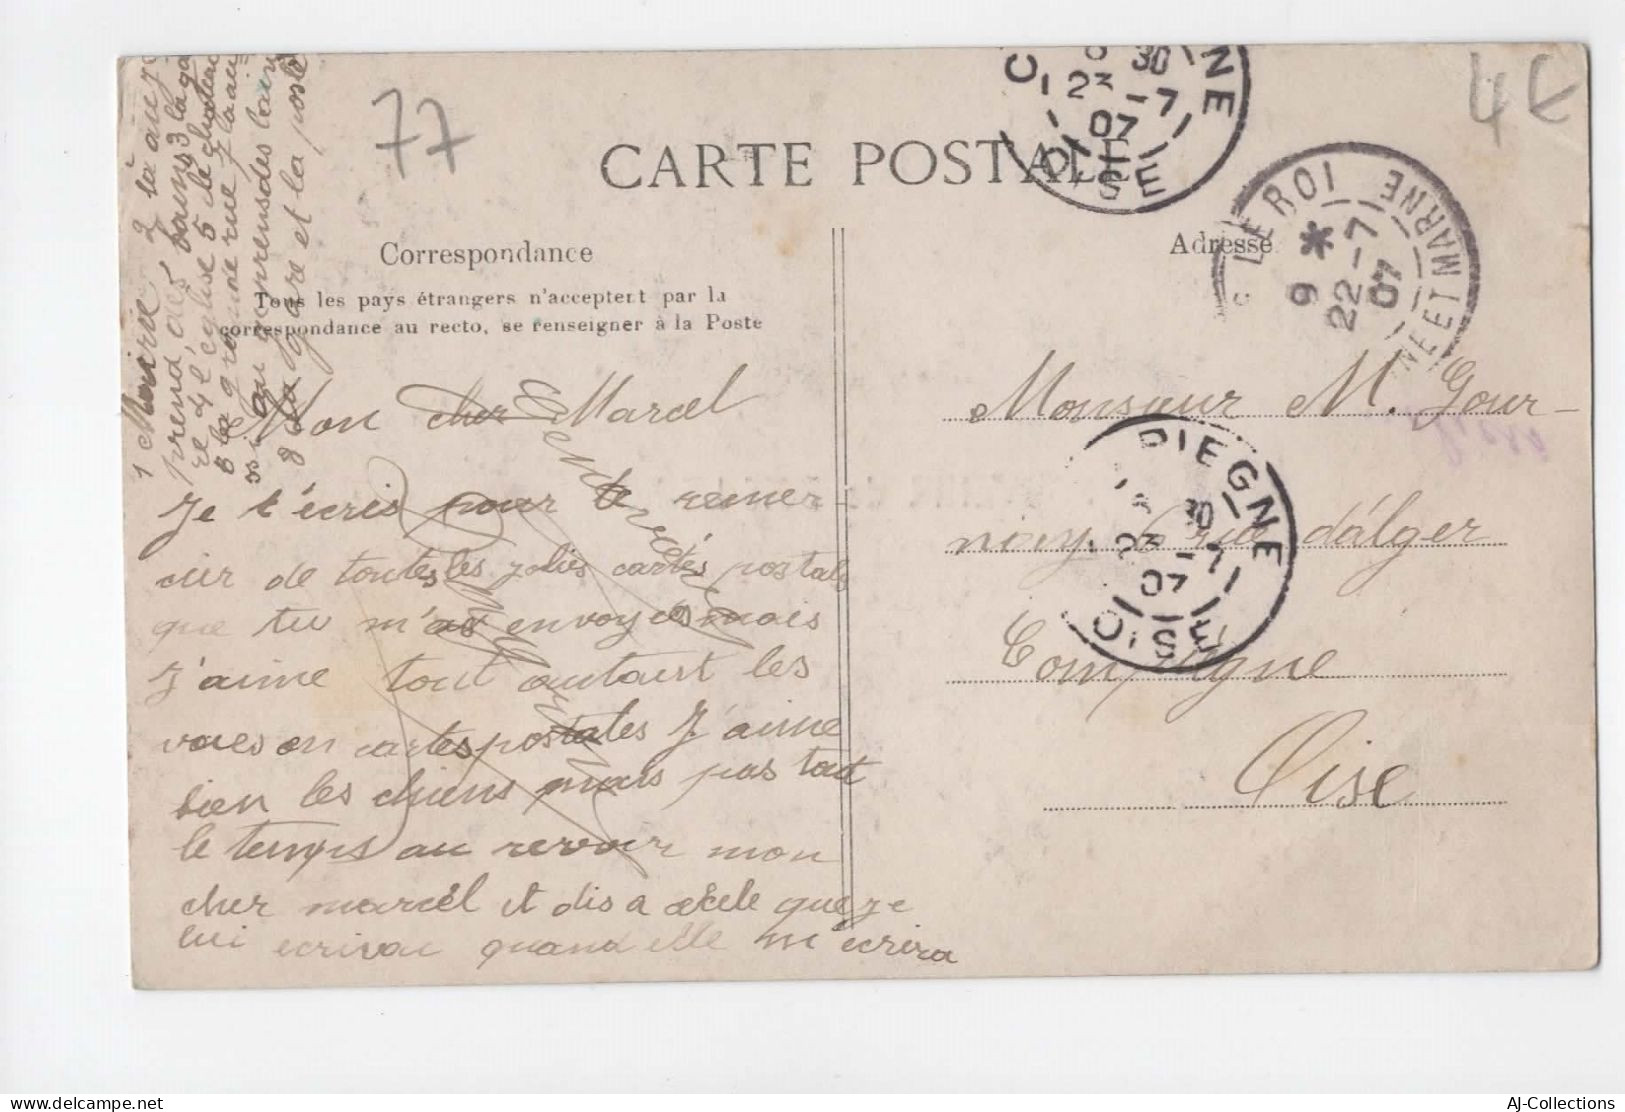 77
4€
CARTE POSTALE
Correspondance
Tous les pays étrangers n'acceptent par la
correspondance au recto, se renseigner à la Poste
Adresse
C NE
30
23 -7
07
OISE
LE ROI
9 *
22 -7
07
NE ET MARNE
1 Mairie 2 là au je
prend des bains 3 la ga
re 4 l'église 5 le chateau
6 la grande rue 7 la
8 la gare et la poste
Mon cher Marcel
Je t'écris pour te remer-
cier de toutes les jolies cartes postals
que tu m'as envoyées mais
j'aime tout autant les
voues en cartes postales J'aime
bien les chiens mais pas tout
le temps au revoir mon
cher marcel et dis a que je
lui ecrivai quand elle m'écrira
Monsieur M. Gour-
nay 6 rue d'alger
Compiègne
Oise
PIEGNE
30
23 -7
07
OISE
AJ-Collections